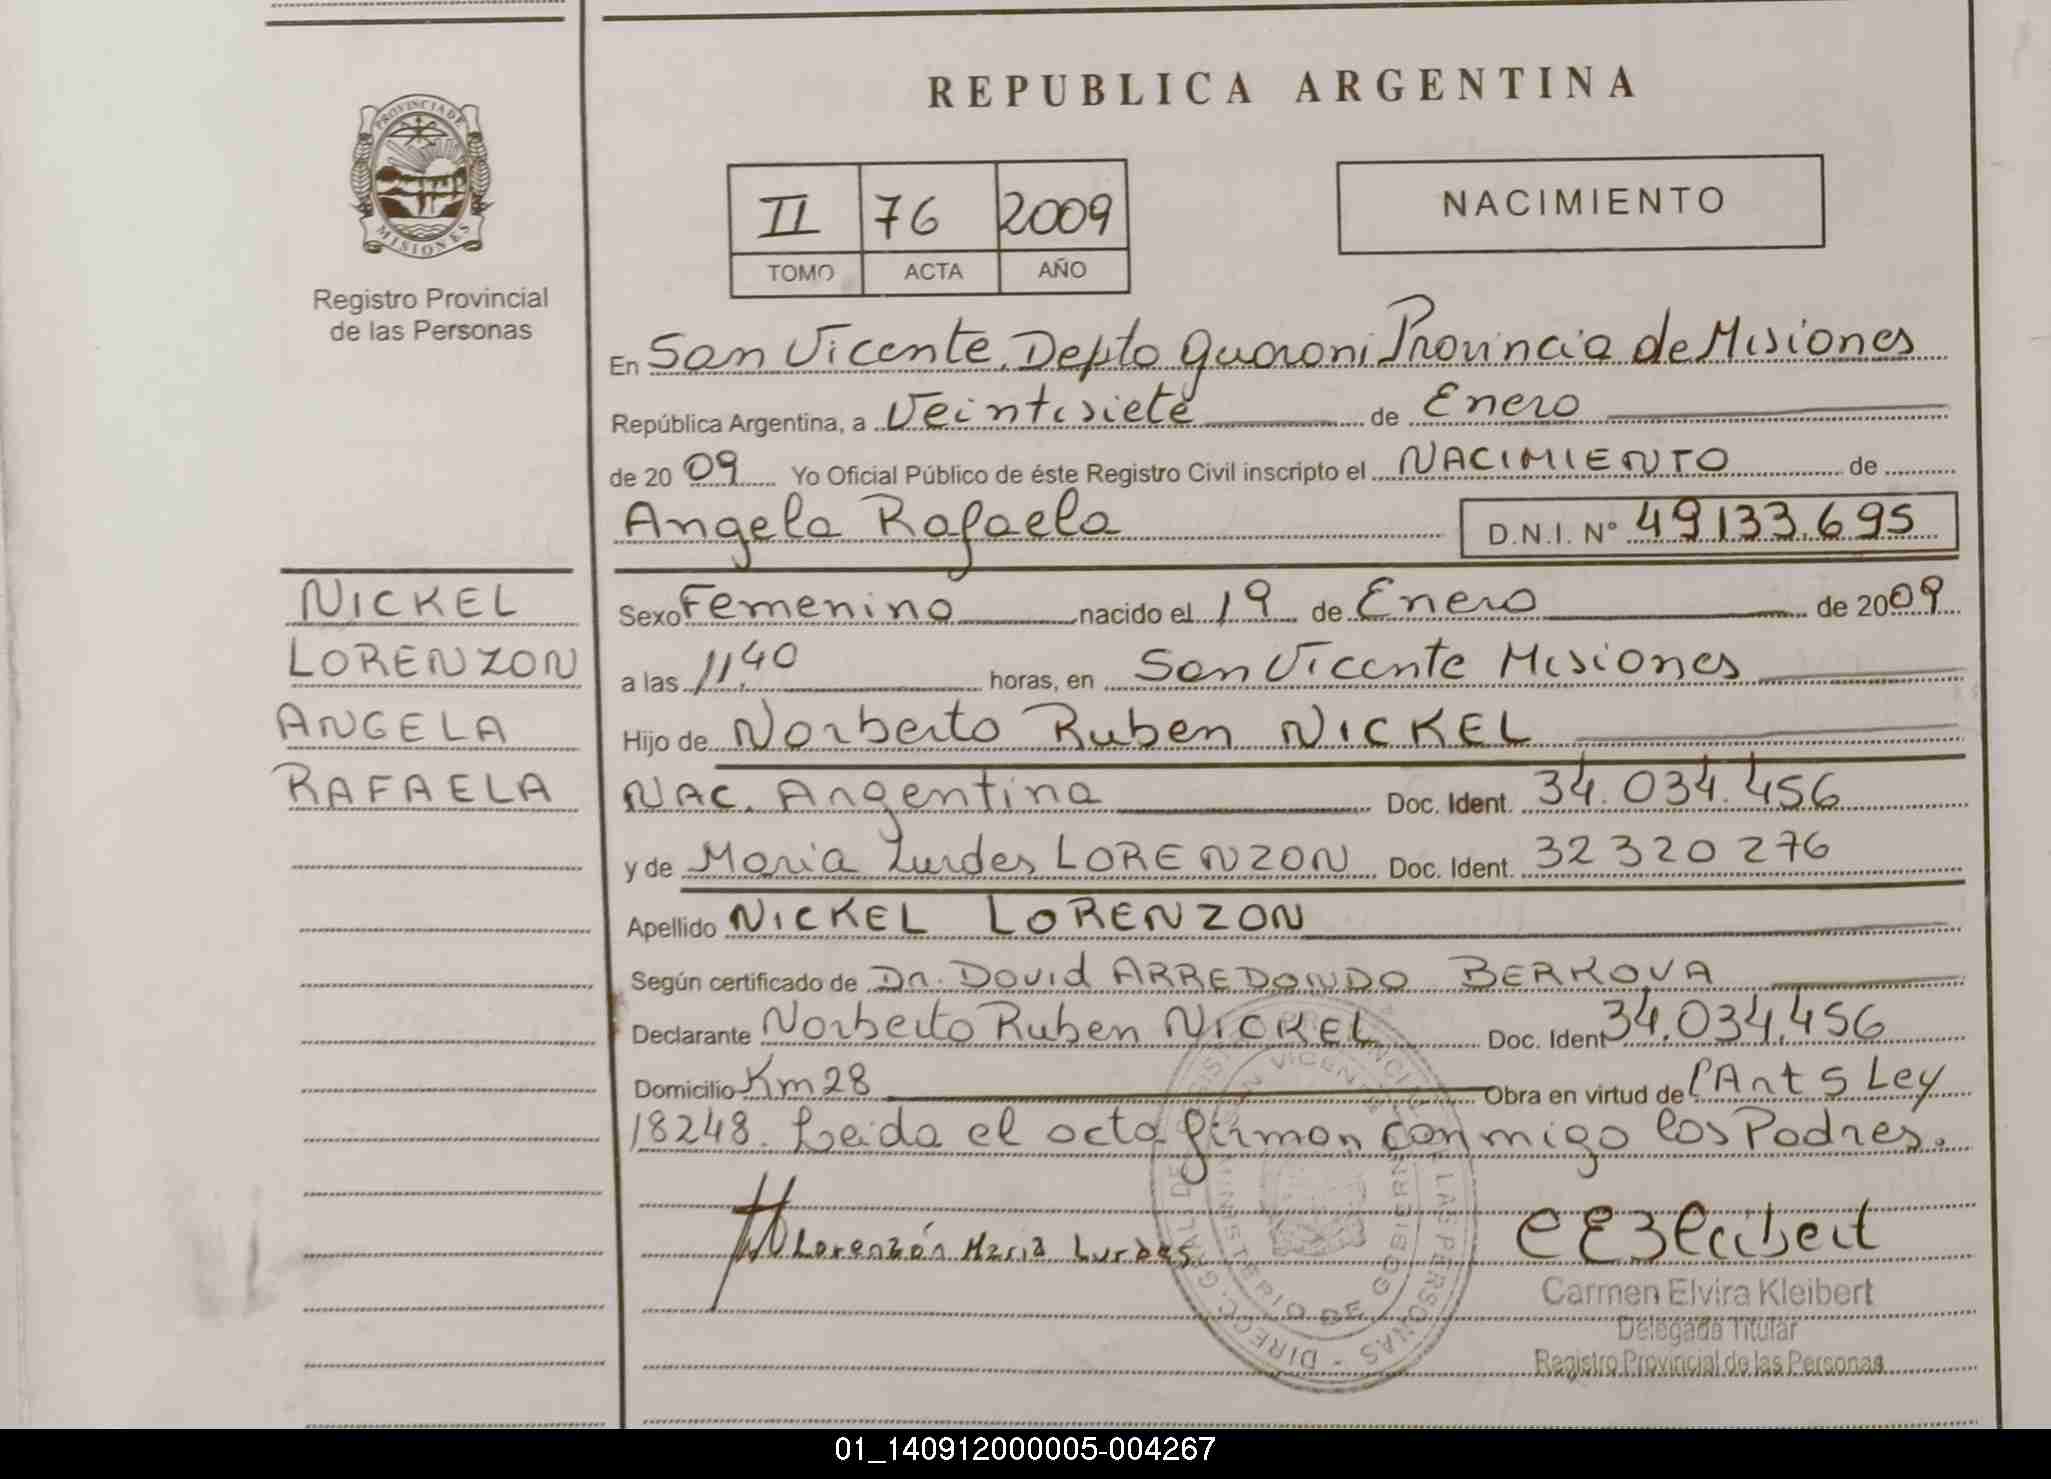 REPUBLICA ARGENTINA
PROVINCIA DE
MISIONES
Registro Provincial
de las Personas
II 76 2009
TOMO ACTA AÑO
NACIMIENTO
En San Vicente, Depto Guarani Provincia de Misiones
República Argentina, a Veintisiete de Enero
de 2009 Yo Oficial Público de éste Registro Civil inscripto el NACIMIENTO de
Angela Rafaela D.N.I. Nº 49133.695
NICKEL
LORENZON
ANGELA
RAFAELA
Sexo Femenino nacido el 19 de Enero de 2009
a las 11,40 horas, en San Vicente Misiones
Hijo de Norberto Ruben NICKEL
NAC. Argentina Doc. Ident. 34.034.456
y de Maria Lurdes LORENZON Doc. Ident. 32 320 276
Apellido NICKEL LORENZON
Según certificado de Dr. David ARREDONDO BERKOVA
Declarante Norberto Ruben NICKEL Doc. Ident 34.034.456
Domicilio Km 28 Obra en virtud de l'Art 5 Ley
18248. Leida el acta firman conmigo los Padres.
Lorenzón Maria Lurdes
Carmen Elvira Kleibert
Delegada Titular
Registro Provincial de las Personas
MINISTERIO DE GOBIERNO
01_140912000005-004267